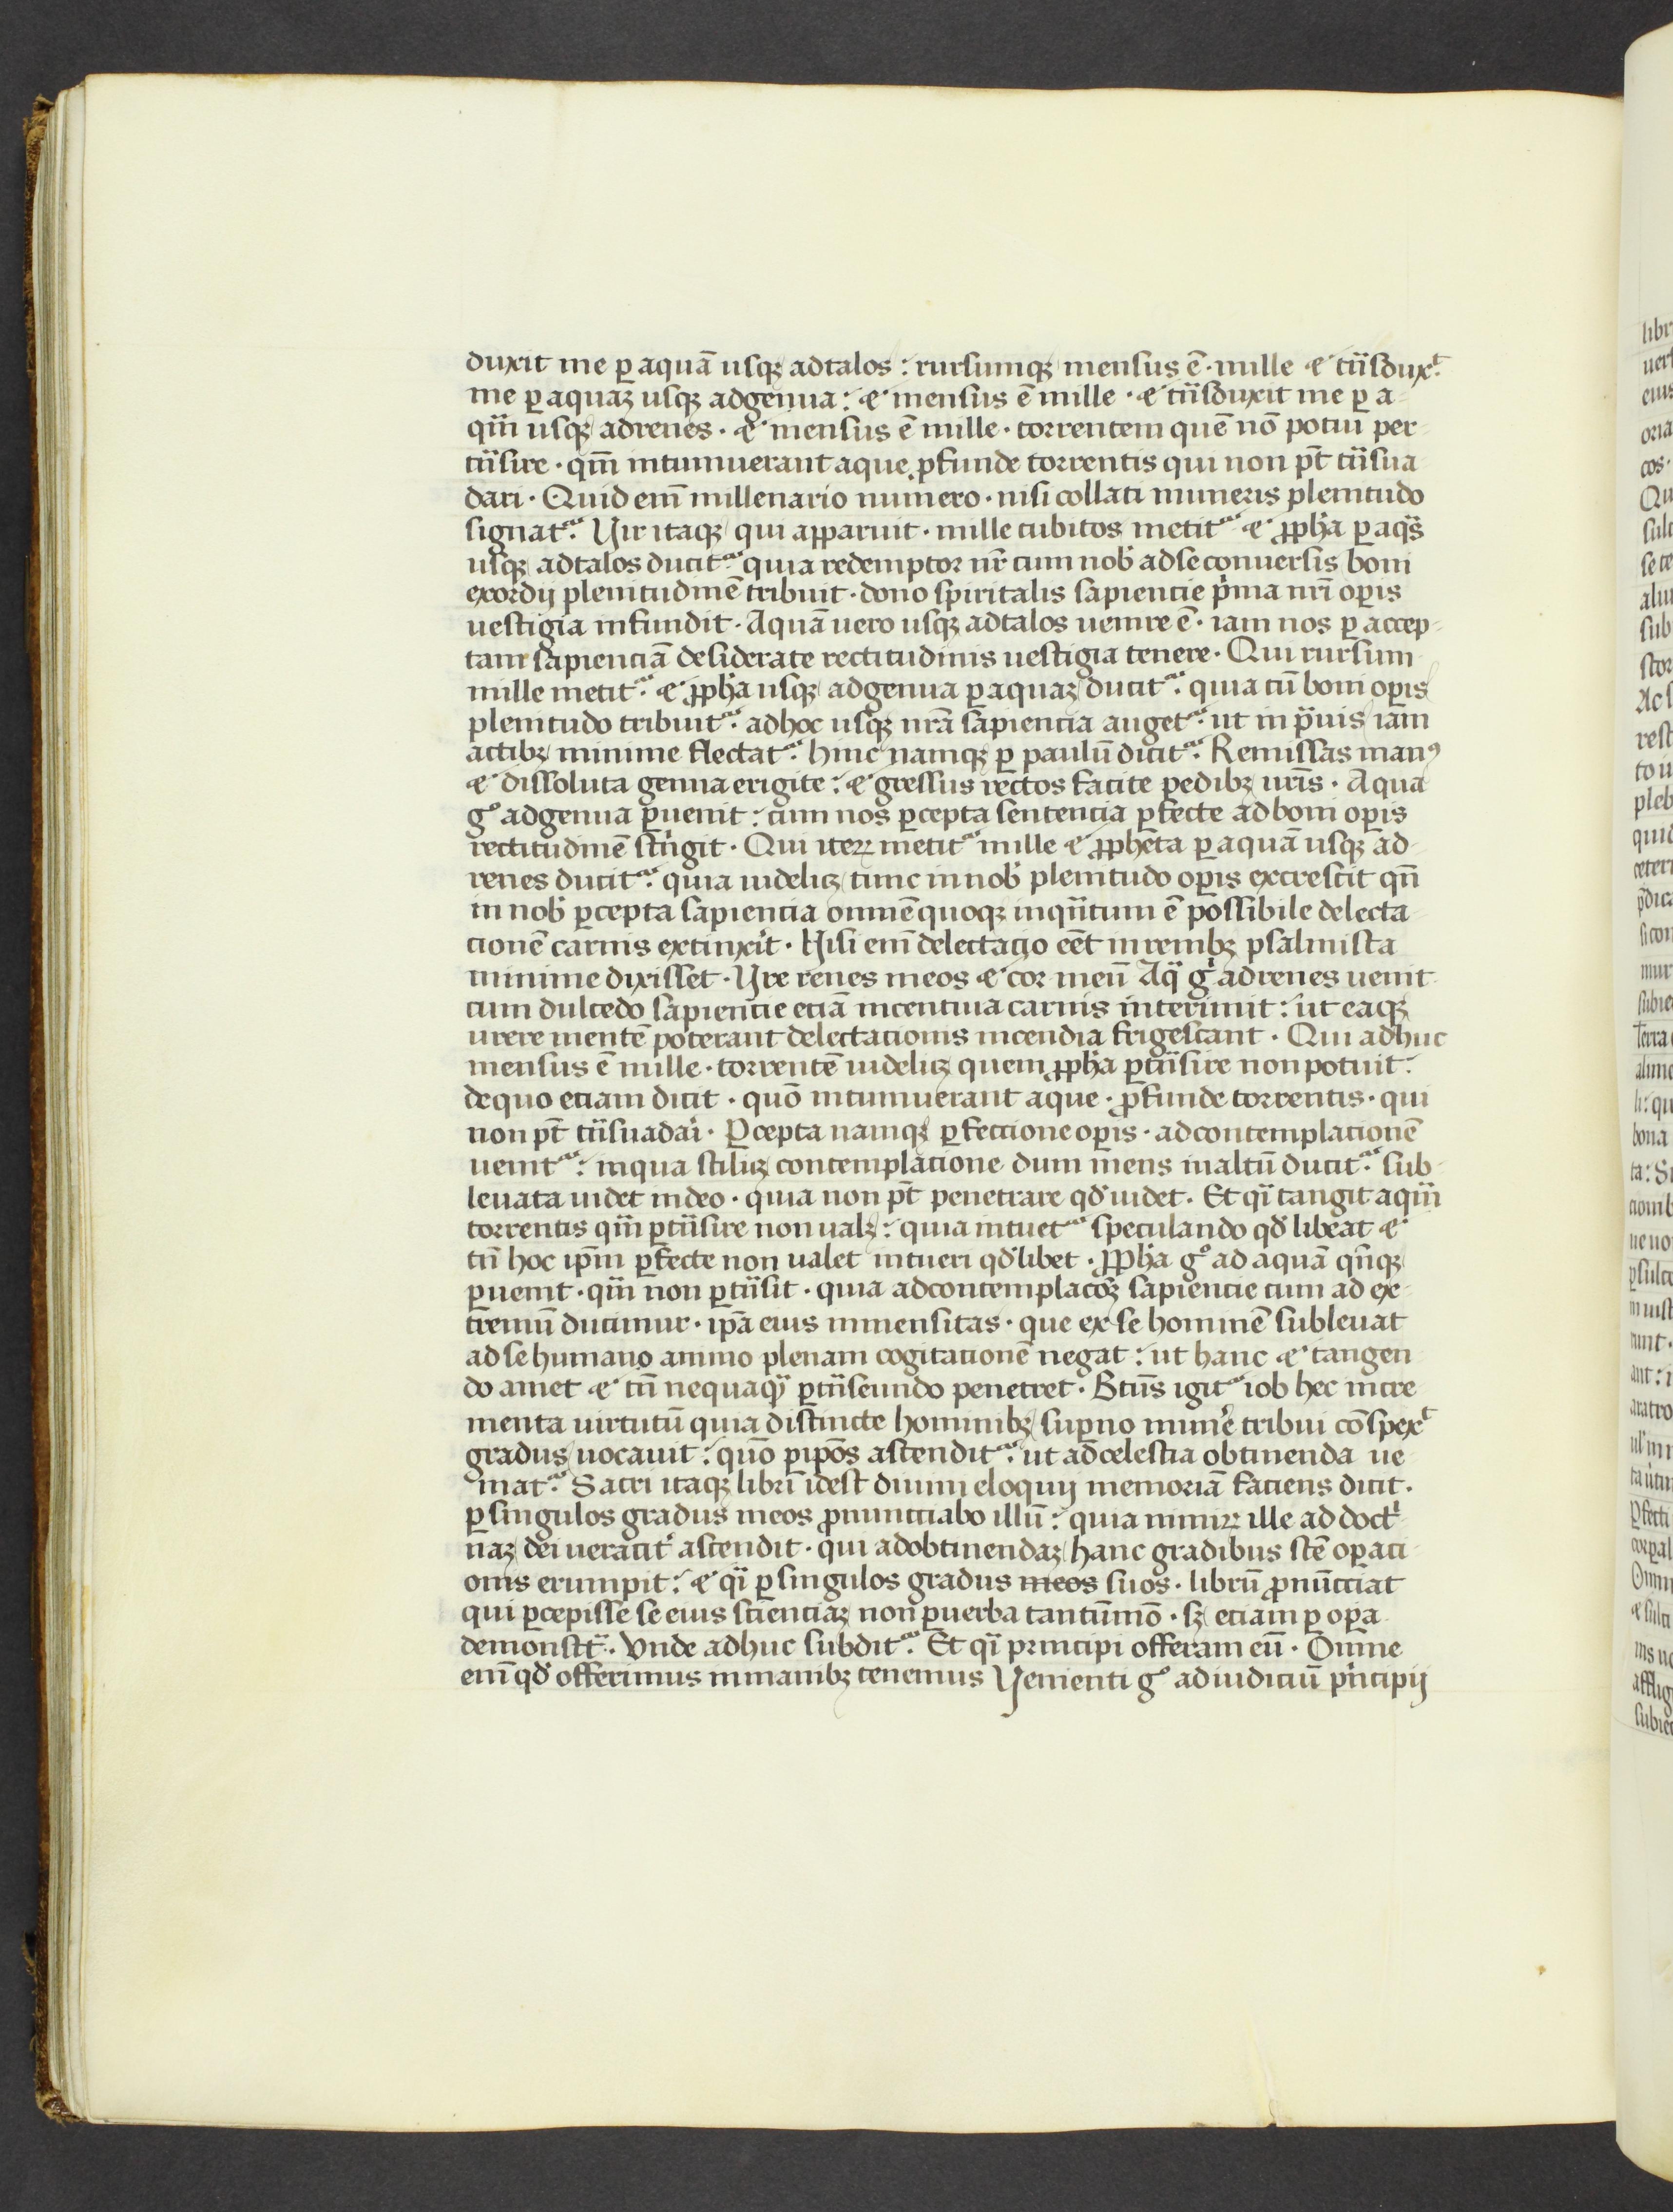 duxit me ꝑ aquā usqꝫ adtalos : rursumqꝫ mensus ē · mille ⁊ tūsduxᵗ.
me ꝑ aquaꝫ usqꝫ adgenua : ⁊ mensus ē mille · ⁊ tūsduxit me ꝑ a-
qm̄ usqꝫ adrenes · ⁊ mensus ē mille · torrentem quē nō potui per-
tūsire · qm̄ intumuerant aque ꝓfunde torrentis qui non pt̄ tūsua
dari · Quid em̄ millenario numero · nisi collati muneris plenitudo
signat᷑. Vir itaqꝫ qui apparuit · mille cubitos metit᷑ ⁊ ꝓpha ꝑ aqs
usqꝫ adtalos ducit᷑. quia redemptor nr̄ cum nob̓ adse conuersis boni
exordij plenitudinē tribuit · dono spiritalis sapiencie pⁱma nr̄i oꝑis
uestigia infundit · Aquā uero usqꝫ adtalos uenire ē · iam nos ꝑ accep-
tam sapienciā desiderate rectitudinis uestigia tenere · Qui rursum
mille metit᷑. ⁊ ꝓpha usqꝫ adgenua ꝑ aquaꝫ ducit᷑. quia cū boni oꝑis
plenitudo tribuit᷑. adhoc usqꝫ nr̄a sapiencia auget᷑. ut in pͣuis iam
actibꝫ minime flectat᷑. hinc namqꝫ ꝑ paulū dicit᷑. Remissas manꝰ
⁊ dissoluta genua erigite : ⁊ gressus rectos facite pedibꝫ ur̄is · Aqua
gᵒ adgenua ꝑuenit : cum nos ꝑcepta sentencia ꝑfecte ad boni oꝑis
rectitudinē stⁱngit · Qui iteꝝ metit᷑ mille ⁊ ꝓpheta ꝑ aquā usqꝫ ad-
renes ducit᷑. quia uidelicꝫ tunc in nob̓ plenitudo oꝑis excrescit qn̄
in nob̓ ꝑcepta sapiencia omnē quoqꝫ inqͣntum ē possibile delecta
cionē carnis extinxⁱt · Nisi em̄ delectacio eēt inrenibꝫ psalmista
minime dixisset · Vre renes meos ⁊ cor meū Aqͣ gͥ adrenes uenit
cum dulcedo sapiencie eciā incentiua carnis interimit : ut eaqꝫ
urere mentē poterant delectacionis incendia frigescant · Qui adhuc
mensus ē mille · torrentē uidelicꝫ quem ꝓpha ꝑtūsire nonpotuit :
dequo etiam dicit · quō intumuerant aque · ꝓfunde torrentis · qui
non pt̄ tūsuadaⁱ · Ꝑcepta namqꝫ ꝑfeccione oꝑis · adcontemplacionē
uenit᷑. inqua scilicꝫ contemplacione dum mens inaltū ducit᷑. sub-
leuata uidet indeo · quia non pt̄ penetrare qd̓ uidet · Et qͣi tangit aqm̄
torrentis qm̄ ꝑtūsire non ualꝫ : quia intuet᷑ speculando qd̓ libeat ⁊
tn̄ hoc ip̄m ꝑfecte non ualet intueri qd̓ libet · Ꝓpha gᵒ ad aquā qn̄qꝫ
ꝑuenit · qm̄ non ꝑtūsit · quia adcontemplacōꝫ sapiencie cum ad ex-
tremū ducimur · ip̄a eius inmensitas · que exse hominē subleuat
ad se humano animo plenam cogitationē negat : ut hanc ⁊ tangen
do amet ⁊ tn̄ nequaqͣ ꝑtūseundo penetret · Btūs igit᷑ iob hec incre
menta uirtutū quia distincte hominibꝫ suꝑno mun̓e tribui cōspexᵗ
gradus uocauit : quō ꝑ ip̄os ascendit᷑. ut ad celestia obtinenda ue
niat᷑. Sacri itaqꝫ libri idest diuini eloquij memoriā faciens dicit ·
ꝑ singulos gradus meos ꝓnuncciabo illū : quia nimiꝝ ille ad doctⁱ-
naꝫ dei ueracit̓ ascendit · qui adobtinendaꝫ hanc gradibus stē oꝑaci
onis erumpit : ⁊ qͣi ꝑ singulos gradus meos suos · librū ꝓnūcciat
qui ꝑcepisse se eius scienciaꝫ non ꝑ uerba tantūmō · sꝫ etiam ꝑ oꝑa
demonstᵗͣ. Vnde adhuc subdit᷑. Et qͣi principi offeram eū · Omne
em̄ qd̓ offerimus inmanibꝫ tenemus Venienti gᵒ adiudiciū pⁱncipij